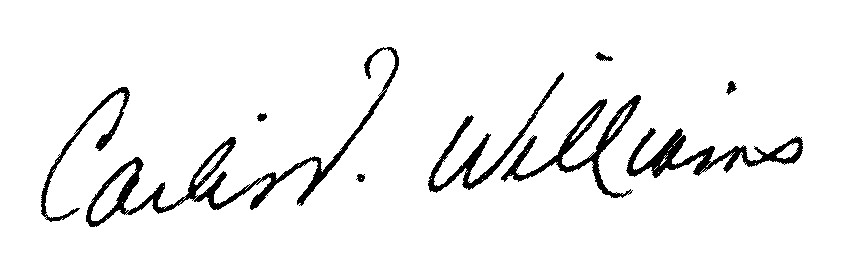 Carlis V. Williams